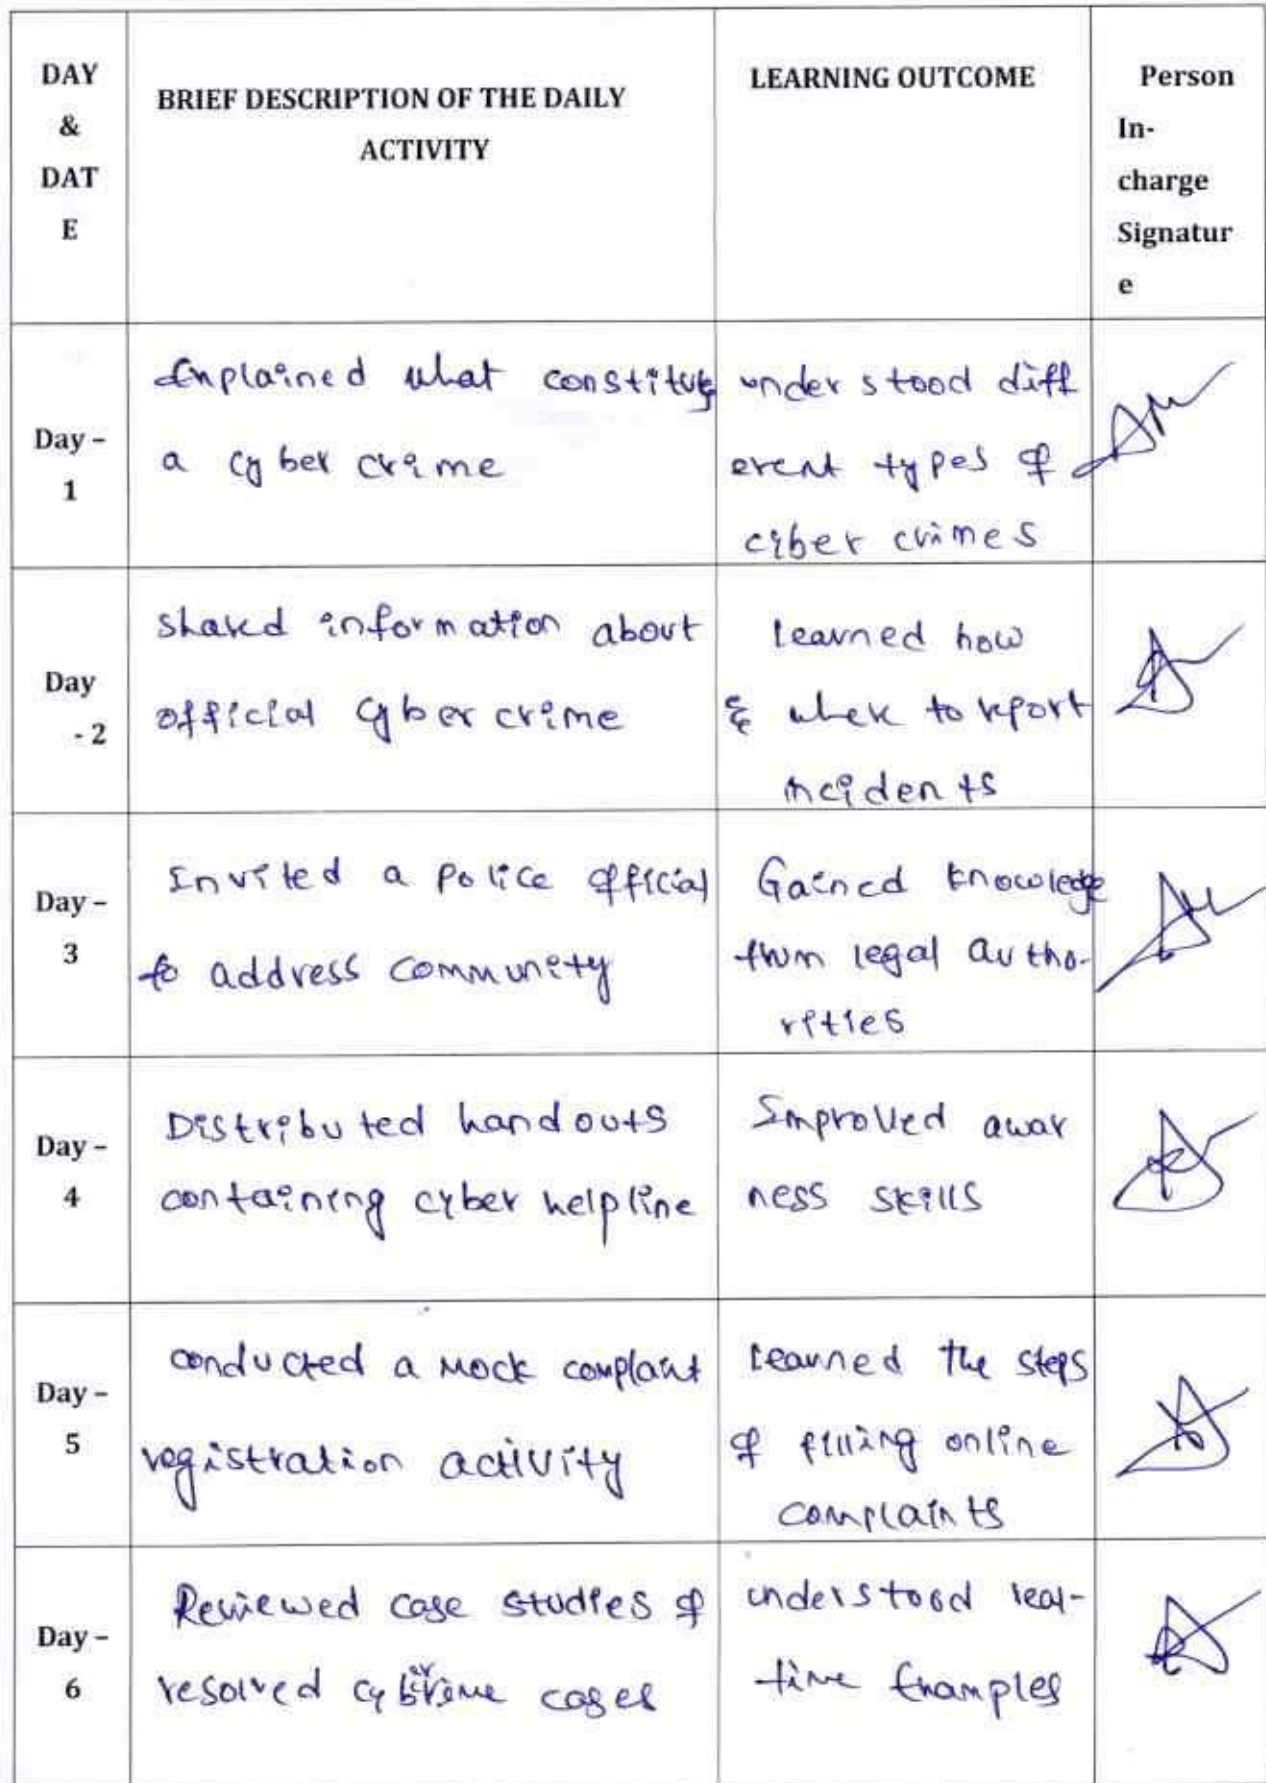 DAY
&
DAT
E
BRIEF DESCRIPTION OF THE DAILY
ACTIVITY
LEARNING OUTCOME
Person
In-
charge
Signatur
e
Day –
1
Enplained what constitutes
a cyber crime
understood diff
erent types of
ciber crimes
Day
- 2
shared information about
official cyber crime
learned how
& where to report
incidents
Day –
3
Invited a police official
to address community
Gained knowledge
from legal autho-
rities
Day –
4
Distributed handouts
containing cyber helpline
Improved awar
ness skills
Day –
5
conducted a mock complaint
registration activity
learned the steps
of filling online
complaints
Day –
6
Reviewed case studies of
resolved cybercrime cases
understood real-
time Enamples